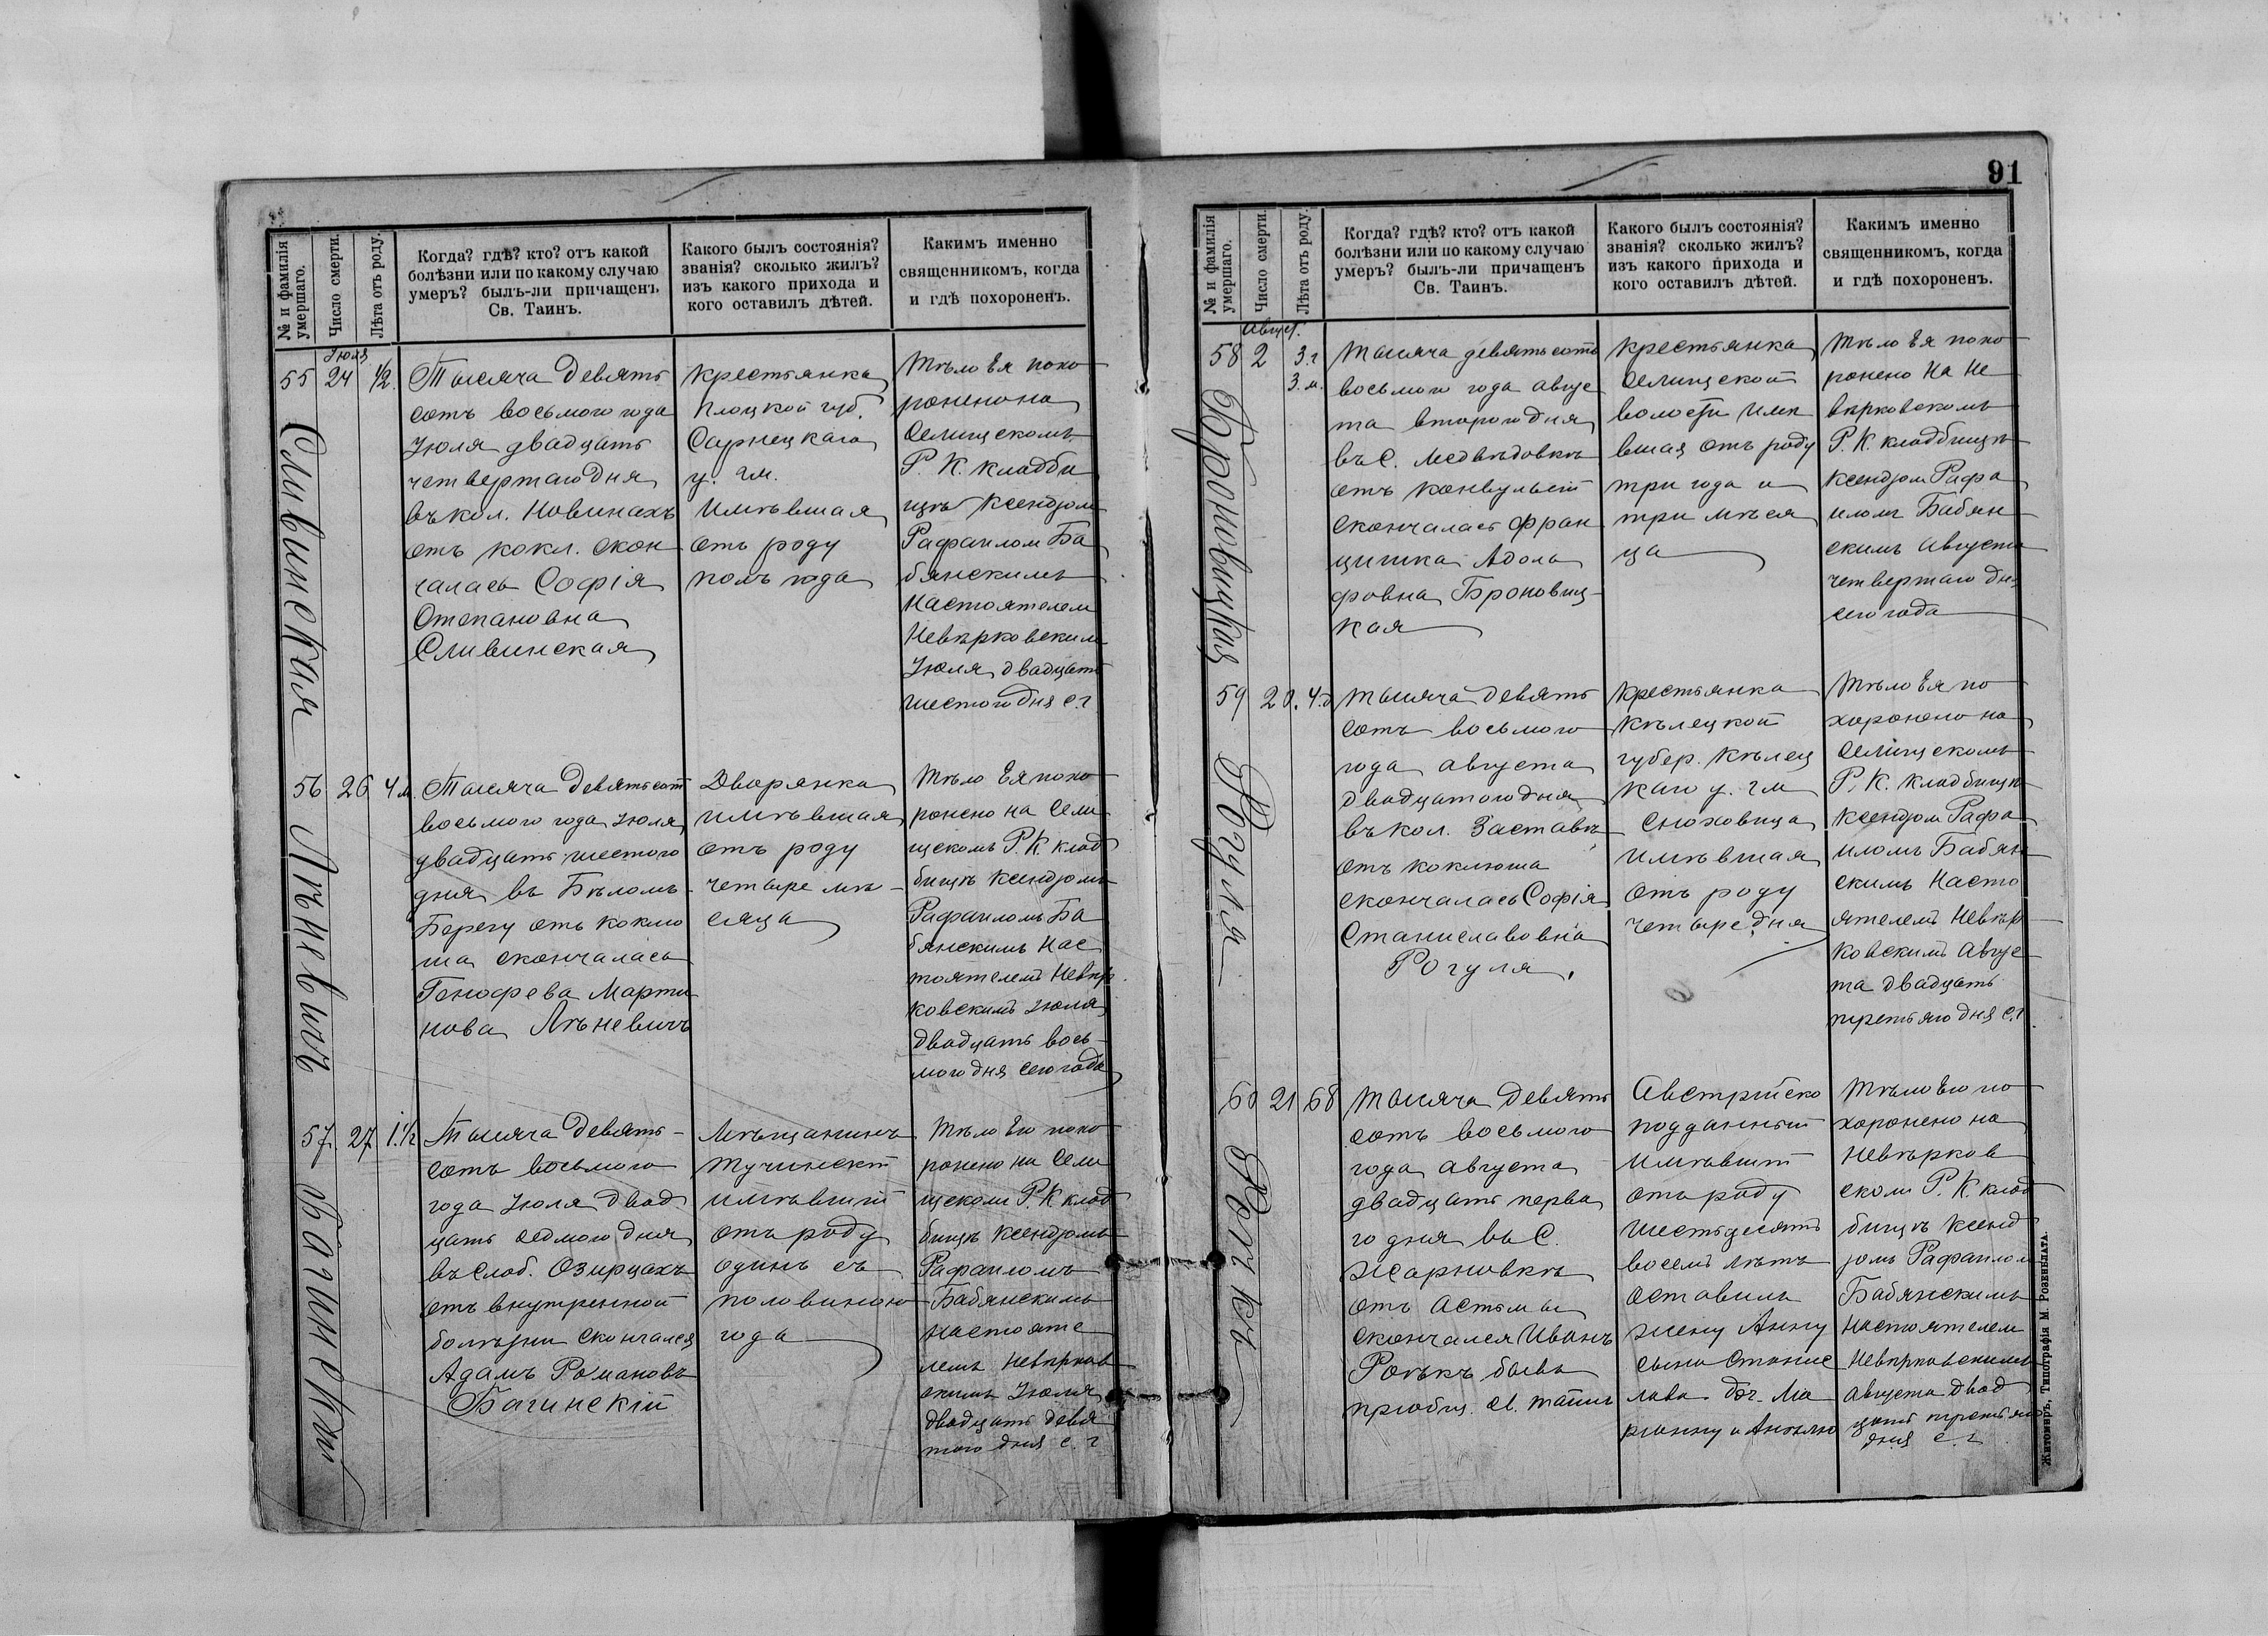 91
№ и фамилія умершаго.
Число смерти.
Лѣта отъ роду.
Когда? гдѣ? кто? отъ какой
болѣзни или по какому случаю
умеръ? былъ-ли причащенъ
Св. Таинъ.
Какого былъ состоянія?
званія? сколько жилъ?
изъ какого прихода и
кого оставилъ дѣтей.
Какимъ именно
священникомъ, когда
и гдѣ похороненъ.
Іюля
55 24 1/2.
Сливинская
Тысяча девять
сотъ восьмого года
Іюля двадцать
четвертаго дня
въ кол. Новинахъ
отъ кокл. скон
чалась Софія
Степановна
Сливинская
Крестьянка
Плоцкой губ.
Сарнецкаго
у. гм.
имѣвшая
отъ роду
полъ года
Тѣло Ея похо
ронено на
Селищскомъ
Р. К. кладби
щѣ Ксендзом
Рафаилом Ба
бянскимъ
Настоятелем
Невѣрковским
Іюля двадцать
шестого дня с. г
56 26 4 м.
Лѣневичъ
Тысяча девятьсот
восьмого года Іюля
двадцать шестого
дня въ Бѣломъ
Берегу отъ коклю
ша скончалась
Генофева Марти
нова Лѣневичъ
Дворянка
имѣвшая
отъ роду
четыре мѣ-
сяца
Тѣло Ея похо
ронено на Сели
щскомъ Р. К. клад
бищѣ Ксендзомъ
Рафаиломъ Ба
бянскимъ Нас
тоятелемъ Невѣр
ковскимъ Іюля
двадцать вось-
мого дня сего года
57. 27 1.1/2
Багинскій
Тысяча девять-
сотъ восьмого
года Іюля двад
цать седмого дня
въ слоб. Озирцахъ
отъ внутренной
болѣзни скончался
Адамъ Романовъ
Багинскій
Мѣщанинъ
Тучинскій
имѣвшій
отъ роду
одинъ съ
половиною
года
Тѣло Его похо
ронено на Сели
щском Р. К. клад
бищѣ Ксендзомъ
Рафаиломъ
Бабянскимъ
Настояте
лемъ Невѣрков
скимъ Іюля
двадцать девя
того дня с. г
№ и фамилія умершаго.
Число смерти.
Лѣта отъ роду.
Когда? гдѣ? кто? отъ какой
болѣзни или по какому случаю
умеръ? былъ-ли причащенъ
Св. Таинъ.
Какого былъ состоянія?
званія? сколько жилъ?
изъ какого прихода и
кого оставилъ дѣтей.
Какимъ именно
священникомъ, когда
и гдѣ похороненъ.
Авгус.
58 2 3. г
3. м.
Броновицкая
Тысяча девятьсотъ
восьмого года авгус
та второго дня
въ С. Медвѣдовкѣ
отъ конвульсій
скончалась Фран
цишка Адоль
фовна Броновиц-
кая
Крестьянка
Селищской
волости имѣ
вшая отъ роду
три года и
три мѣся
ца
Тѣло Ея похо
ронено на Не
вѣрковскомъ
Р. К. кладбищѣ
Ксендзом Рафа
иломъ Бабян-
скимъ Августа
четвертаго дня
сего года
59 20. 4. д
Рогуля
Тысяча девять
сотъ восьмого
года августа
двадцатого дня
въ кол. Заставѣ
отъ коклюша
скончалась Софія
Станиславовна
Рогуля.
Крестьянка
Кѣлецкой
губер. Кѣлец
каго у. гм
Снохов­ица
имѣвшая
отъ роду
четыре дня
Тѣло Ея по
хоронено на
Селищскомъ
Р. К. Кладбищѣ
Ксендзом Рафа
иломъ Бабян
скимъ Насто
ятелемъ Невѣр-
ковскимъ Авгус
та двадцать
третьяго дня с. г
60 21 68
Рогѣкъ
Тысяча девять
сотъ восьмого
года августа
двадцать перва
го дня въ С.
Жарновкѣ
отъ астмы
скончался Иванъ
Рогѣкъ бывъ
пріобщ. Св. тайнъ
Австрійско
подданный
имѣвшій
отъ роду
шестьдесятъ
восемь лѣтъ
Оставилъ
жену Анну
сына Станис
лава доч. Ма
ріанну и Анѣлю
Тѣло Его по
хоронено на
Невѣрков
ском Р. К. клад
бищѣ Ксенд
зомъ Рафаилом
Бабянскимъ
Настоятелем
Невѣрковскимъ
Августа двад
цать третьяго
дня с. г
Житомиръ, Типографія М. Розенблата.